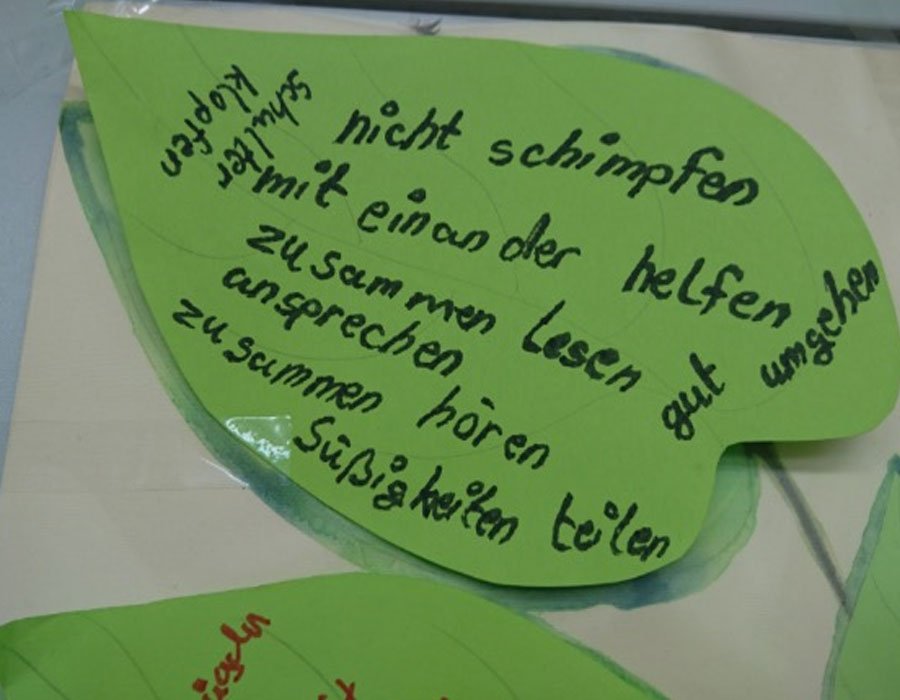 schulter
klopfen
nicht schimpfen
mit einander helfen
zusammen lesen
gut umgehen
ansprechen
zusammen hören
Süßigkeiten teilen